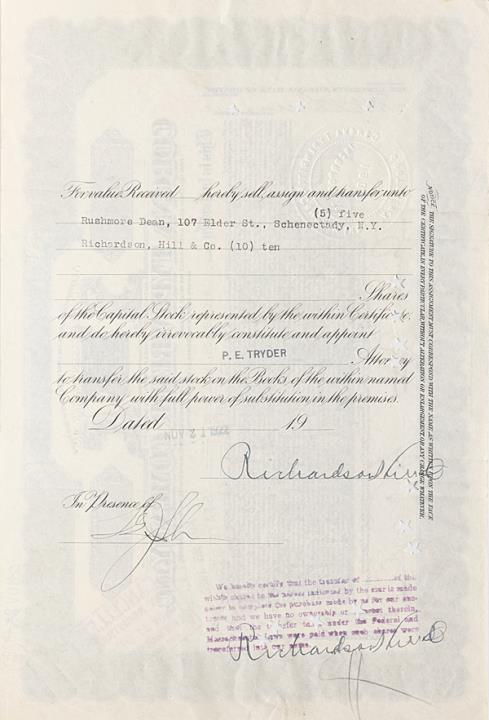 For value Received hereby sell, assign and transfer unto
(5) five
Rushmore Dean, 107 Elder St., Schenectady, N.Y.
Richardson, Hill & Co. (10) ten
Shares
of the Capital Stock represented by the within Certificate.
and do hereby irrevocably constitute and appoint
P. E. TRYDER
Attorney
to transfer the said stock on the Books of the within named
Company with full power of substitution in the premises.
Dated 19
Richardson Hill & Co
In Presence of
We hereby certify that the transfer of of the
within shares to the names indicated by the star is made
tees and we have no ownership or interest therein,
and that the transfer taxes under the Federal and
Massachusetts laws were paid when such shares were
transferred into our name.
Richardson Hill & Co
NOTICE. THE SIGNATURE TO THIS ASSIGNMENT MUST CORRESPOND WITH THE NAME AS WRITTEN UPON THE FACE
OF THE CERTIFICATE IN EVERY PARTICULAR WITHOUT ALTERATION OR ENLARGEMENT OR ANY CHANGE WHATEVER.